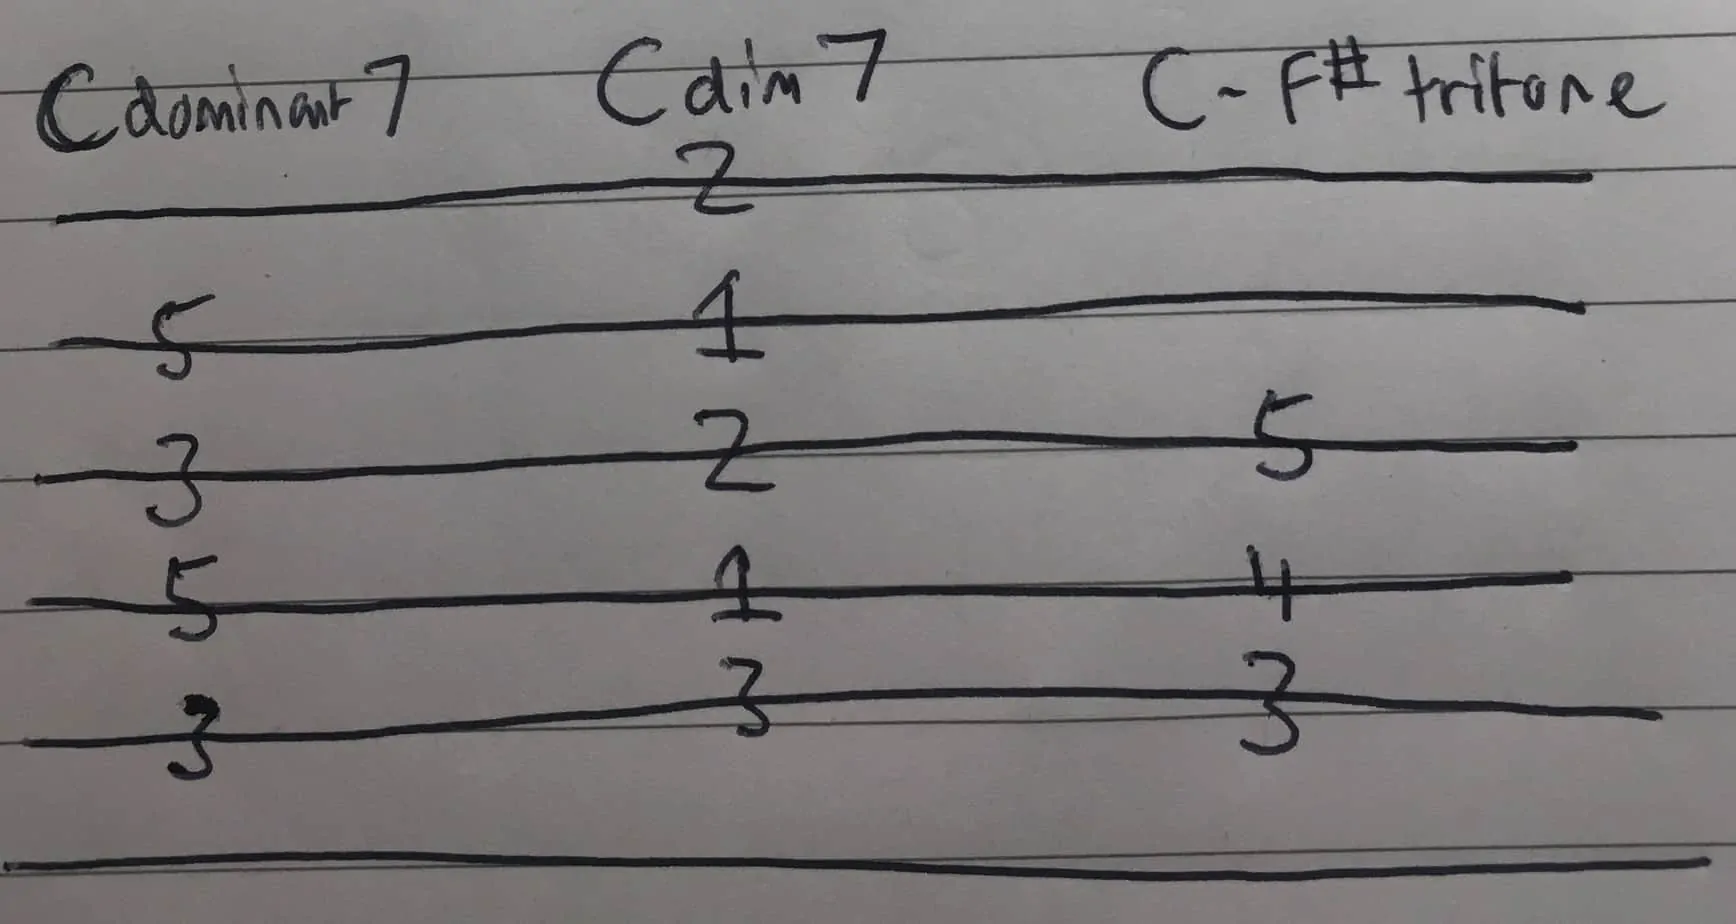 C dominant 7 C dim 7 C - F# tritone
2
5 1
3 2 5
5 1 4
3 3 3